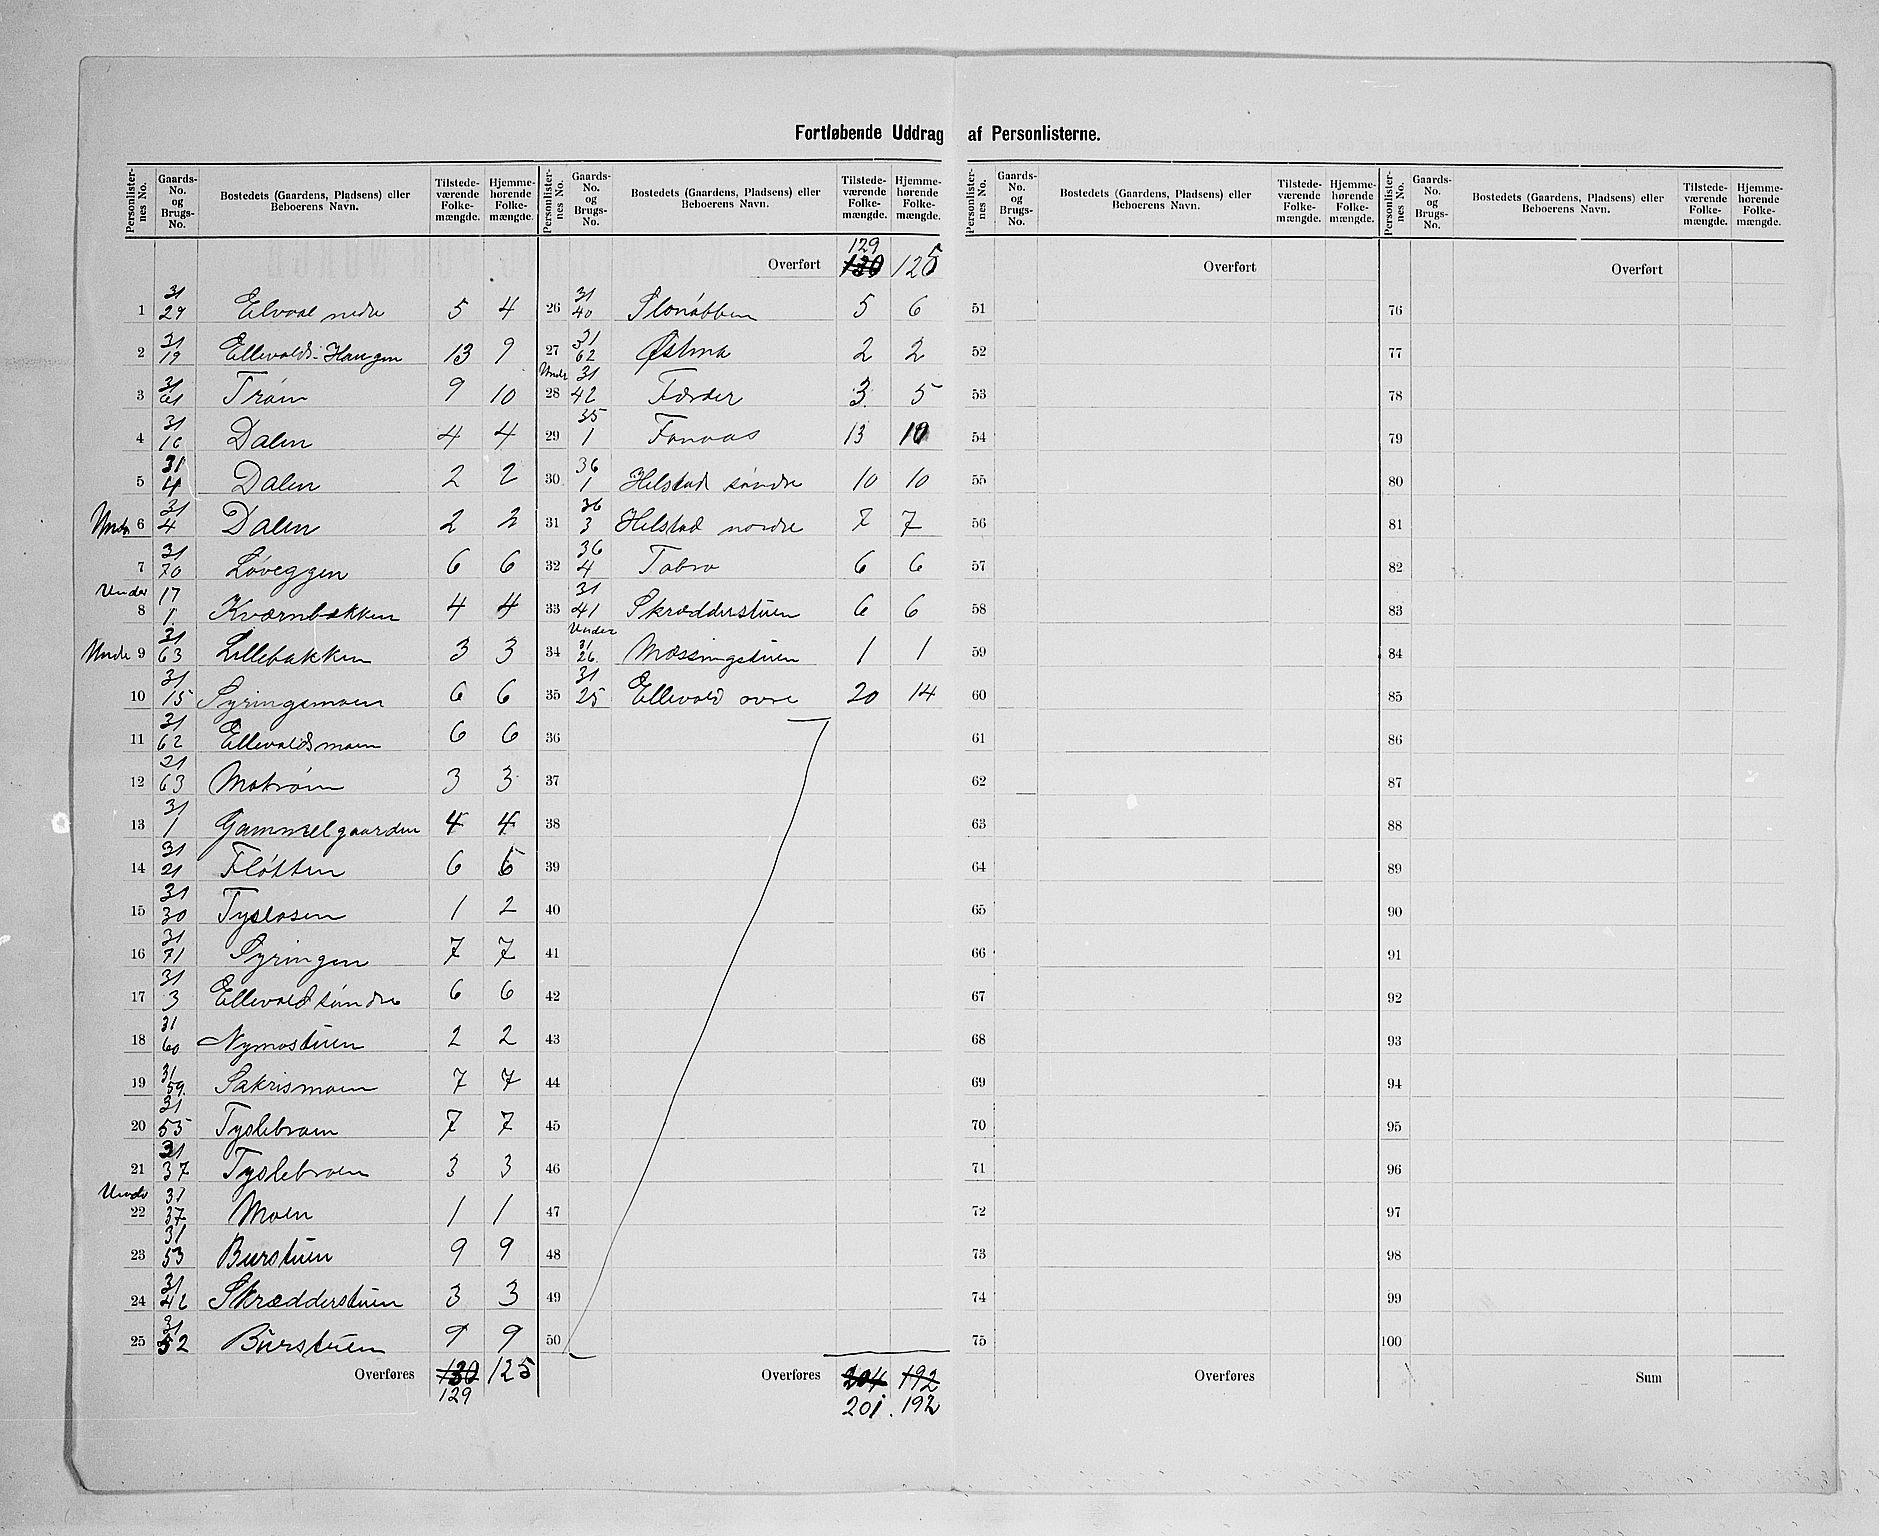 Fortløbende Uddrag af Personlisterne.
Personlisternes No. Gaards-No. og Brugs-No. Bostedets (Gaardens, Pladsens) eller Beboerens Navn. Tilstedeværende Folkemængde. Hjemmehørende Folkemængde.
1 31/29 Elvaal nedre 5 4
2 31/19 Ellevolds-Haugen 13 9
3 31/61 Trøin 9 10
4 31/16 Dalen 4 4
5 31/4 Dalen 2 2
Under 6 31/4 Dalen 2 2
7 31/70 Løveggen 6 6
Under 8 17/1 Kværnbækken 4 4
Under 9 31/63 Lillebakken 3 3
10 31/15 Syringsmoen 6 6
11 31/62 Ellevoldsmoen 6 6
12 31/63 Motrøin 3 3
13 31/1 Gammelgaarden 4 4
14 31/21 Fløtten 6 6
15 31/30 Tyslosen 1 2
16 31/71 Syringen 7 7
17 31/3 Ellevold søndre 6 6
18 31/60 Nymostuen 2 2
19 31/59 Sakrismoen 7 7
20 31/55 Tyslebroen 7 7
21 31/37 Tyslebroen 3 3
Under 22 31/37 Moen 1 1
23 31/53 Burstuen 9 9
24 31/42 Skrædderstuen 3 3
25 31/52 Burstuen 9 9
Overføres 130 125
129
Personlisternes No. Gaards-No. og Brugs-No. Bostedets (Gaardens, Pladsens) eller Beboerens Navn. Tilstedeværende Folkemængde. Hjemmehørende Folkemængde.
129
Overført 130 125
26 31/40 Slonøbben 5 6
27 31/62 Østmo 2 2
Under 28 31/42 Færder 3 5
29 35/1 Fonaas 13 10
30 36/1 Helstad søndre 10 10
31 36/3 Helstad nordre 7 7
32 36/4 Tobro 6 6
33 31/41 Skrædderstuen 6 6
Under 34 31/26 Messingstuen 1 1
35 31/25 Ellevold øvre 20 14
36
37
38
39
40
41
42
43
44
45
46
47
48
49
50
Overføres 204 192
201. 192
Personlisternes No. Gaards-No. og Brugs-No. Bostedets (Gaardens, Pladsens) eller Beboerens Navn. Tilstedeværende Folkemængde. Hjemmehørende Folkemængde.
Overført
51
52
53
54
55
56
57
58
59
60
61
62
63
64
65
66
67
68
69
70
71
72
73
74
75
Overføres
Personlisternes No. Gaards-No. og Brugs-No. Bostedets (Gaardens, Pladsens) eller Beboerens Navn. Tilstedeværende Folkemængde. Hjemmehørende Folkemængde.
Overført
76
77
78
79
80
81
82
83
84
85
86
87
88
89
90
91
92
93
94
95
96
97
98
99
100
Sum